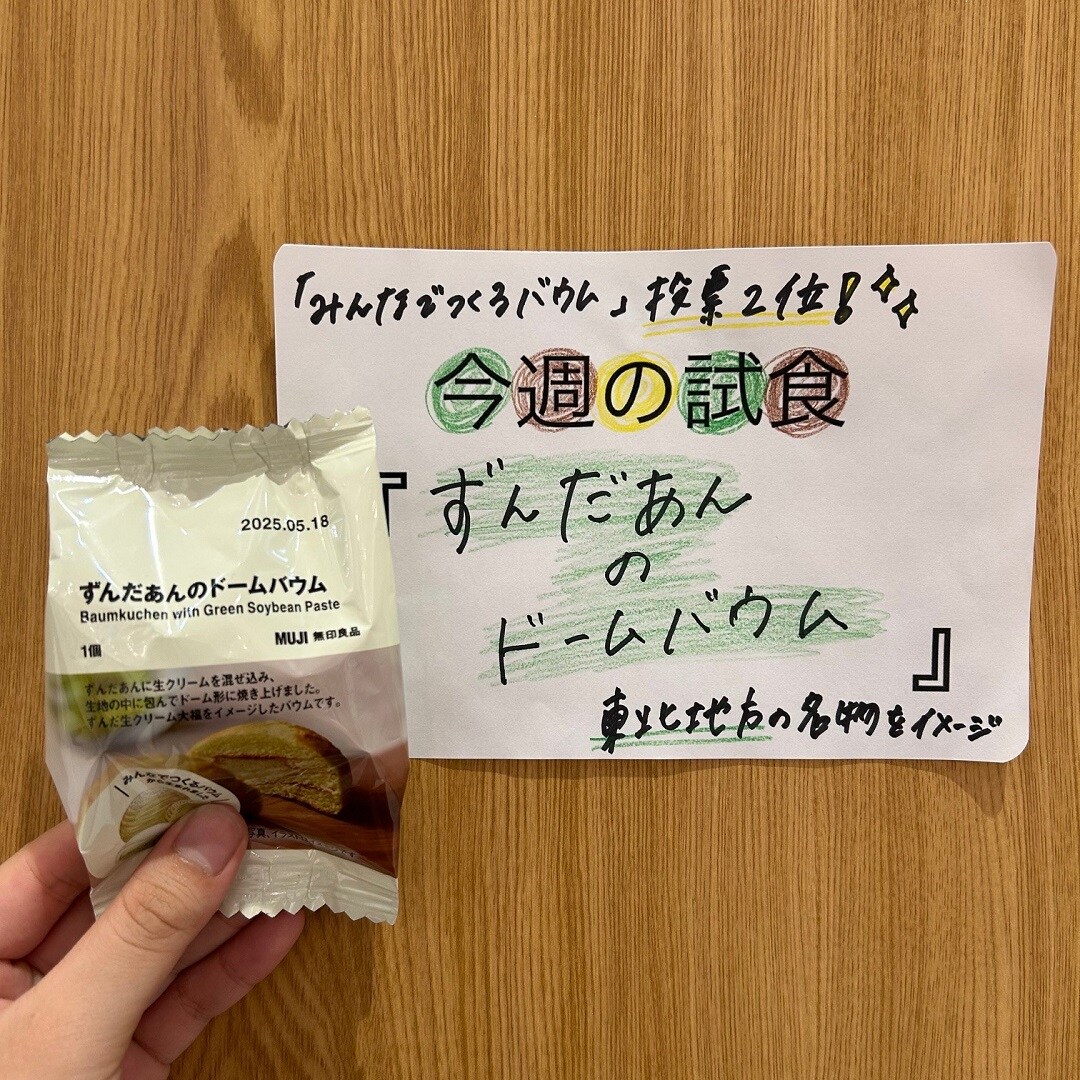 「みんなでつくるバウム」投票2位!
今週の試食
『ずんだあん
の
ドームバウム』
東北地方の名物をイメージ
2025.05.18
ずんだあんのドームバウム
Baumkuchen with Green Soybean Paste
MUJI 無印良品
1個
ずんだあんに生クリームを混ぜ込み、
生地の中に包んでドーム形に焼き上げました。
ずんだ生クリーム大福をイメージしたバウムです。
みんなでつくるバウム
から生まれました